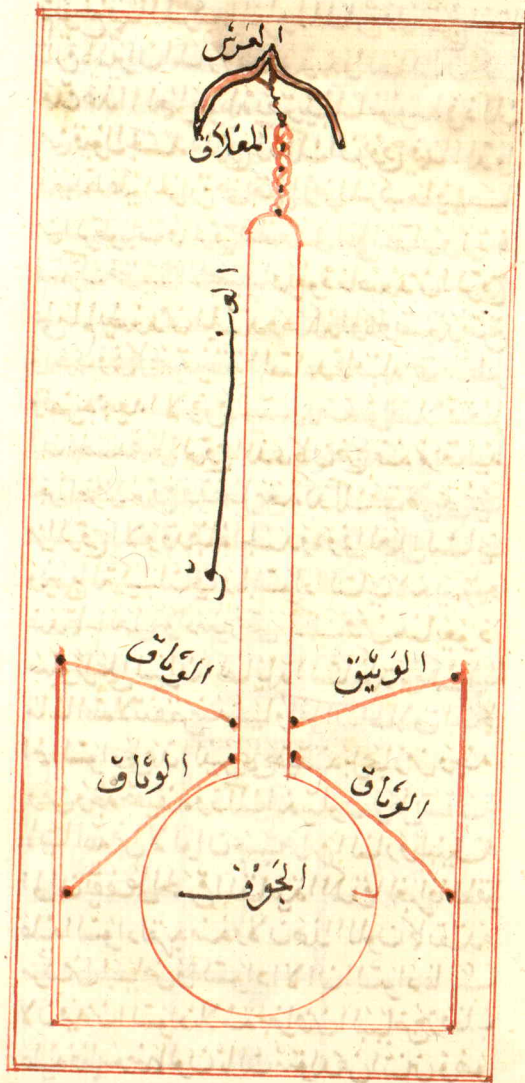 العرش
المعلاق
العنق
الوثاق
الوثيق
الوثاق
الوثاق
الجوف